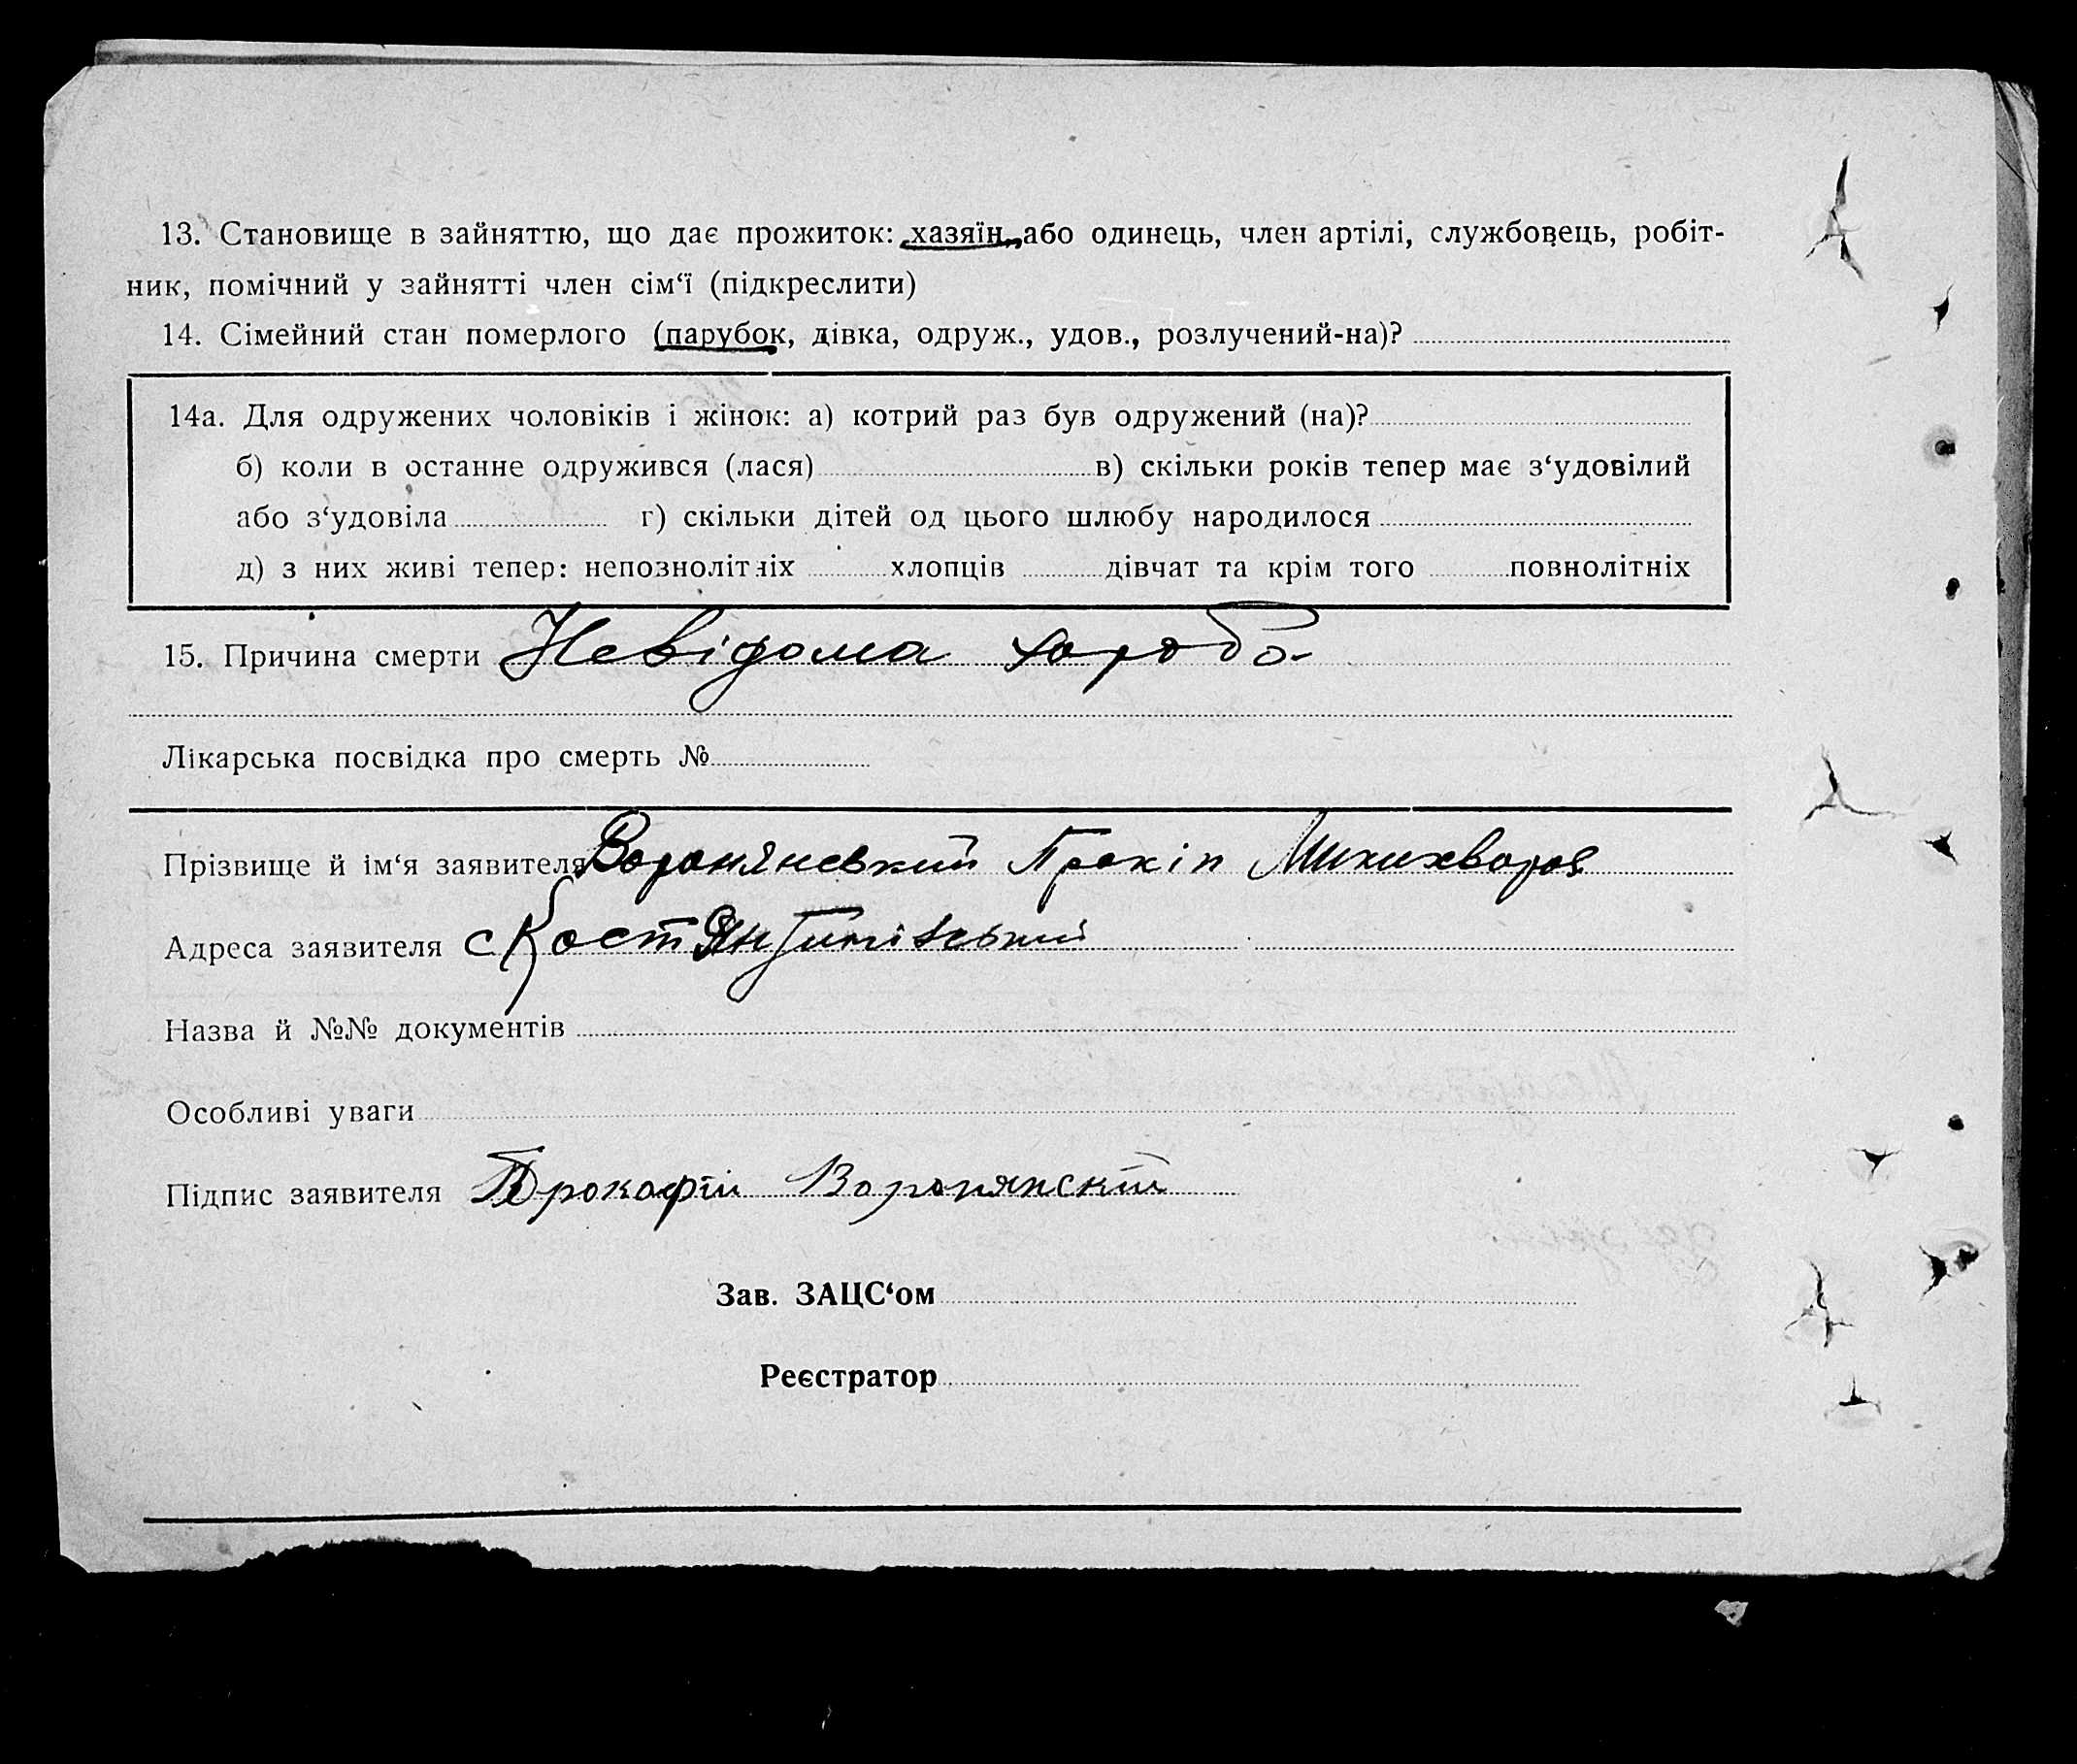 13. Становище в зайняттю, що дає прожиток: хазяїн, або одинець, член артілі, службовець, робіт-
ник, помічний у зайнятті член сім‘ї (підкреслити)
14. Сімейний стан померлого (парубок, дівка, одруж., удов., розлучений-на)?
14а. Для одружених чоловіків і жінок: а) котрий раз був одружений (на)?
б) коли в останне одружився (лася) в) скільки років тепер має з‘удовілий
або з‘удовіла г) скільки дітей од цього шлюбу народилося
д) з них живі тепер: непознолітніх хлопців дівчат та крім того повнолітніх
15. Причина смерти Невідома хороба
Лікарська посвідка про смерть №
Прізвище й ім‘я заявителя Воронянський Прокіп Микихворов
Адреса заявителя с Костянтинівський
Назва й №№ документів
Особливі уваги
Підпис заявителя Прокофій Воронянскій
Зав. ЗАЦС‘ом
Реєстратор